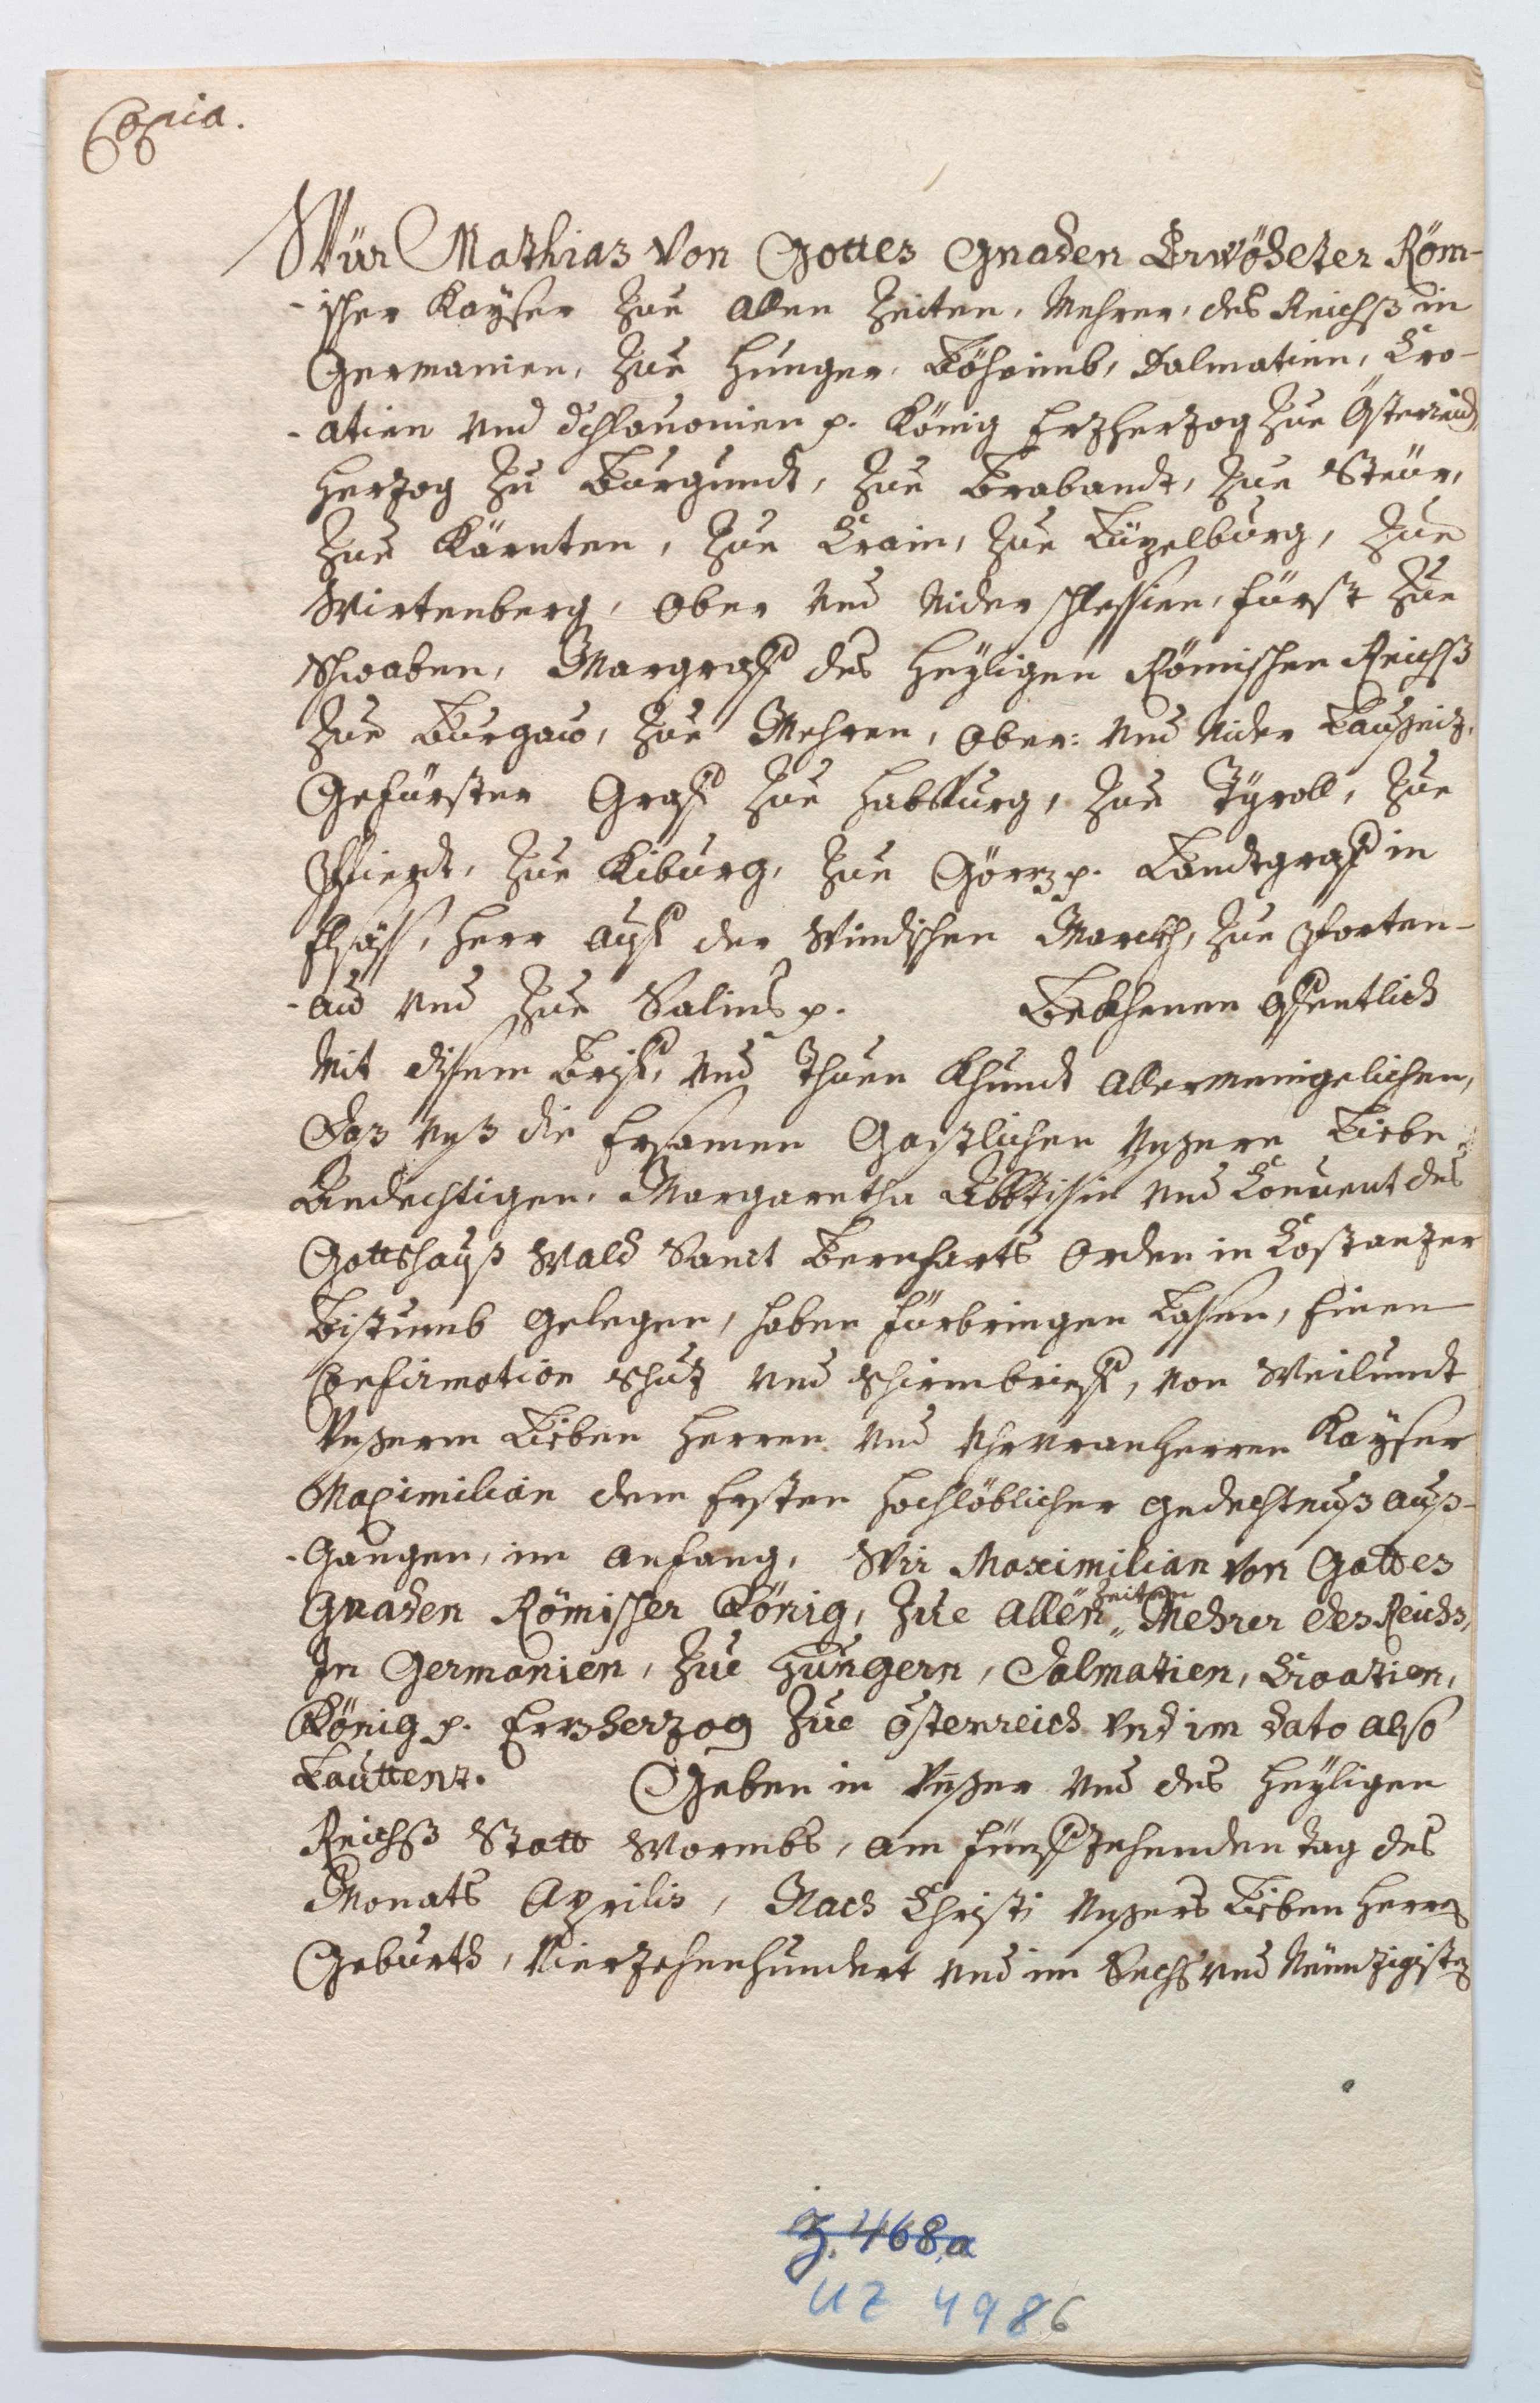 Copia.
Wür Mathias von Gottes Gnaden Erwöhlter Röm-
-ischer Kayser Zue allen Zeiten, Mehrer, des Reichß in
Germanien, Zue Hungern, Böheimb, Dalmatien, Cro-
-atien vnd Schlauonien p. König Erzherzog Zue Österreich
Herzog Zu Burgundt, Zue Brabandt, Zue Steür,
Zue Kärnten, Zue Crain, Zue Lüzelburg, Zue
Wirtenberg, Ober vnd Nider schlessien, fürst Zue
Schwaben, Margraff des Heyligen Römischen Reichß
Zue Burgaw, Zue Mehren, Ober: vnd Nider Laußniz,
Gefürster Graff Zue Habspurg, Zue Tyroll, Zue
Pfierdt, Zue Kiburg, Zue Görz p. Landtgraff in
Elsäss, Herr auff der Windischen Marckh, Zue Porten-
-aw vnd Zue Salins p. Bekhenen offentlich
Mit disem Brieff, vnd Thuen Khundt allermeniqelichen,
Daz vnß die Ersamen Gaystlichen vnßere Liebe
Andechtigen, Margaretha Äbbtissin vnd Conuent des
Gottshauß Wald Sanct Bernharts Orden in Costanzer
Bistumb gelegen, haben fürbringen Lassen, Einen
Confirmation Schuz vnd Schirmbrieff, von Weilundt
Vnßerm Lieben Herren vnd Vhrvranherren Kayser
Maximilian dem Ersten Hochlöblicher gedechtnuß auß-
-gangen, im anfang, Wir Maximilian von Gottes
Gnaden Römischer König, Zue allen Zeiten Mehrer des Reichs,
In Germanien, Zue Hungern, Dalmatien, Croatien,
König p. Erzherzog Zue Österreich vnd im dato also
Lauttent. Geben in Vnßer vnd des Heyligen
Reichß Statt Wormbs, am fünffzehenden tag des
Monats Aprilis, Nach Christi vnßers Lieben Herren
Geburth, Vierzehenhundert vnd im Sechs vnd Neünzigisten
Z. 468,a
UZ 4986